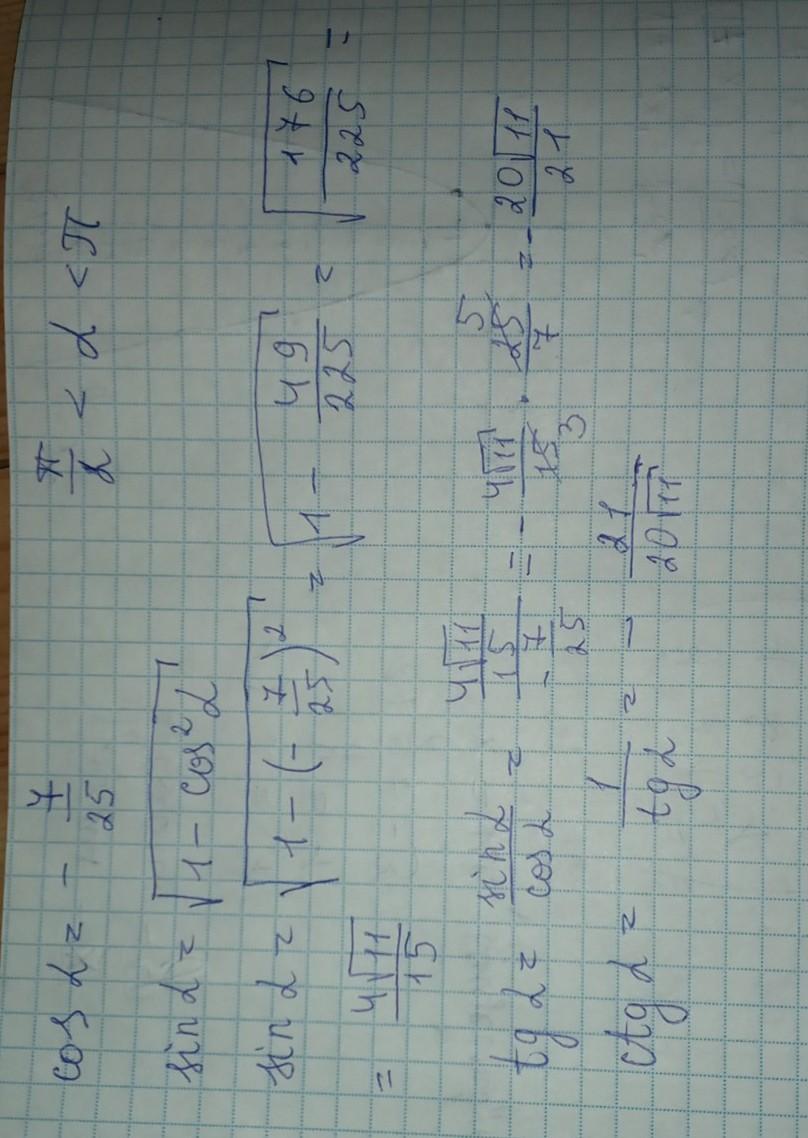 cos α = - 7/25    π/2 < α < π
sin α = √(1 - cos² α)
sin α = √(1 - (- 7/25)²) = √(1 - 49/225) = √(176/225) =
= 4√11/15
tg α = sin α/cos α = (4√11/15)/(- 7/25) = - 4√11/15 3 · 5 25/7 = - 20√11/21
ctg α = 1/tg α = - 21/20√11